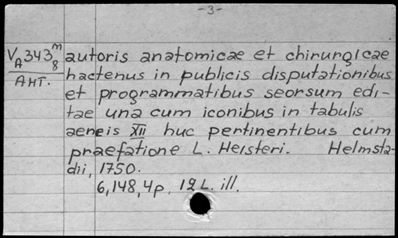 -3-
V_A 343 m/8 autoris anatomicae et chirurgicae
Ант. hactenus in publicis disputationibus
et programmatibus seorsum edi-
tae una cum iconibus in tabulis
aeneis XII huc pertinentibus cum
praefatione L. Heisteri. Helmsta-
dii, 1750.
6,148,4p. 12 L. ill.